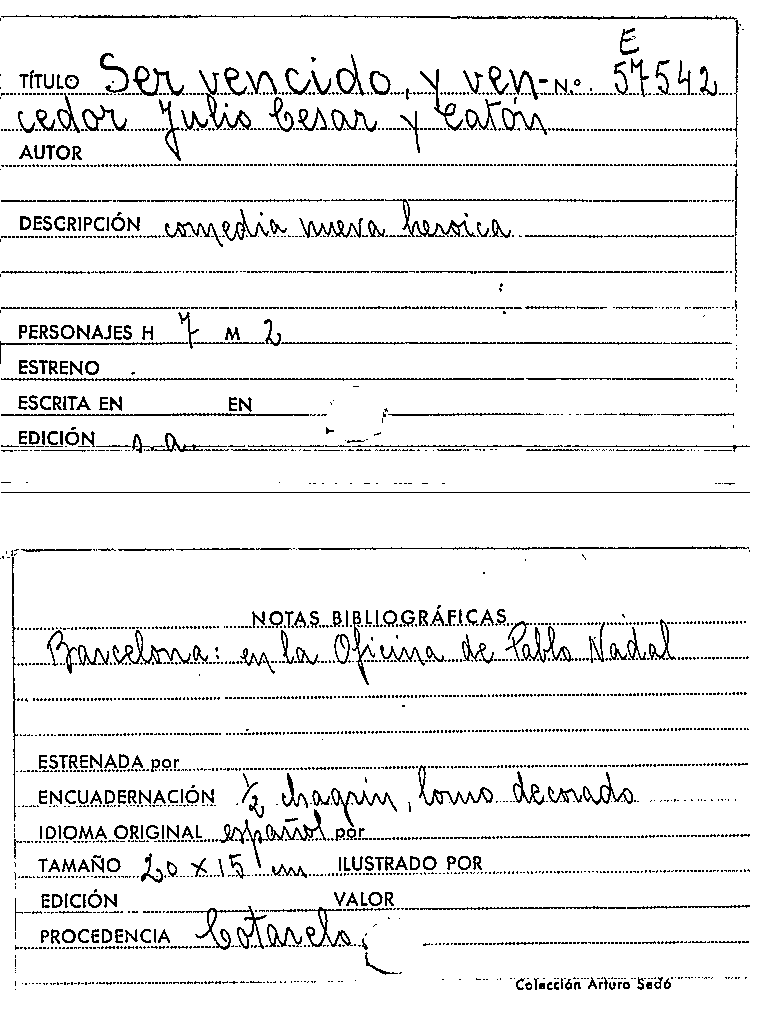 E
TÍTULO Ser vencido, y ven- N.º 57542
cedor Julio Cesar y Catón
AUTOR
DESCRIPCIÓN comedia nueva heroica
PERSONAJES H 7 M 2
ESTRENO
ESCRITA EN EN
EDICIÓN s.a.
NOTAS BIBLIOGRÁFICAS
Barcelona: en la Oficina de Pablo Nadal
ESTRENADA por
ENCUADERNACIÓN 1/2 chagrin, lomo decorado
IDIOMA ORIGINAL español por
TAMAÑO 20 x 15 cm ILUSTRADO POR
EDICIÓN VALOR
PROCEDENCIA Cotarelo
Colección Arturo Sedó